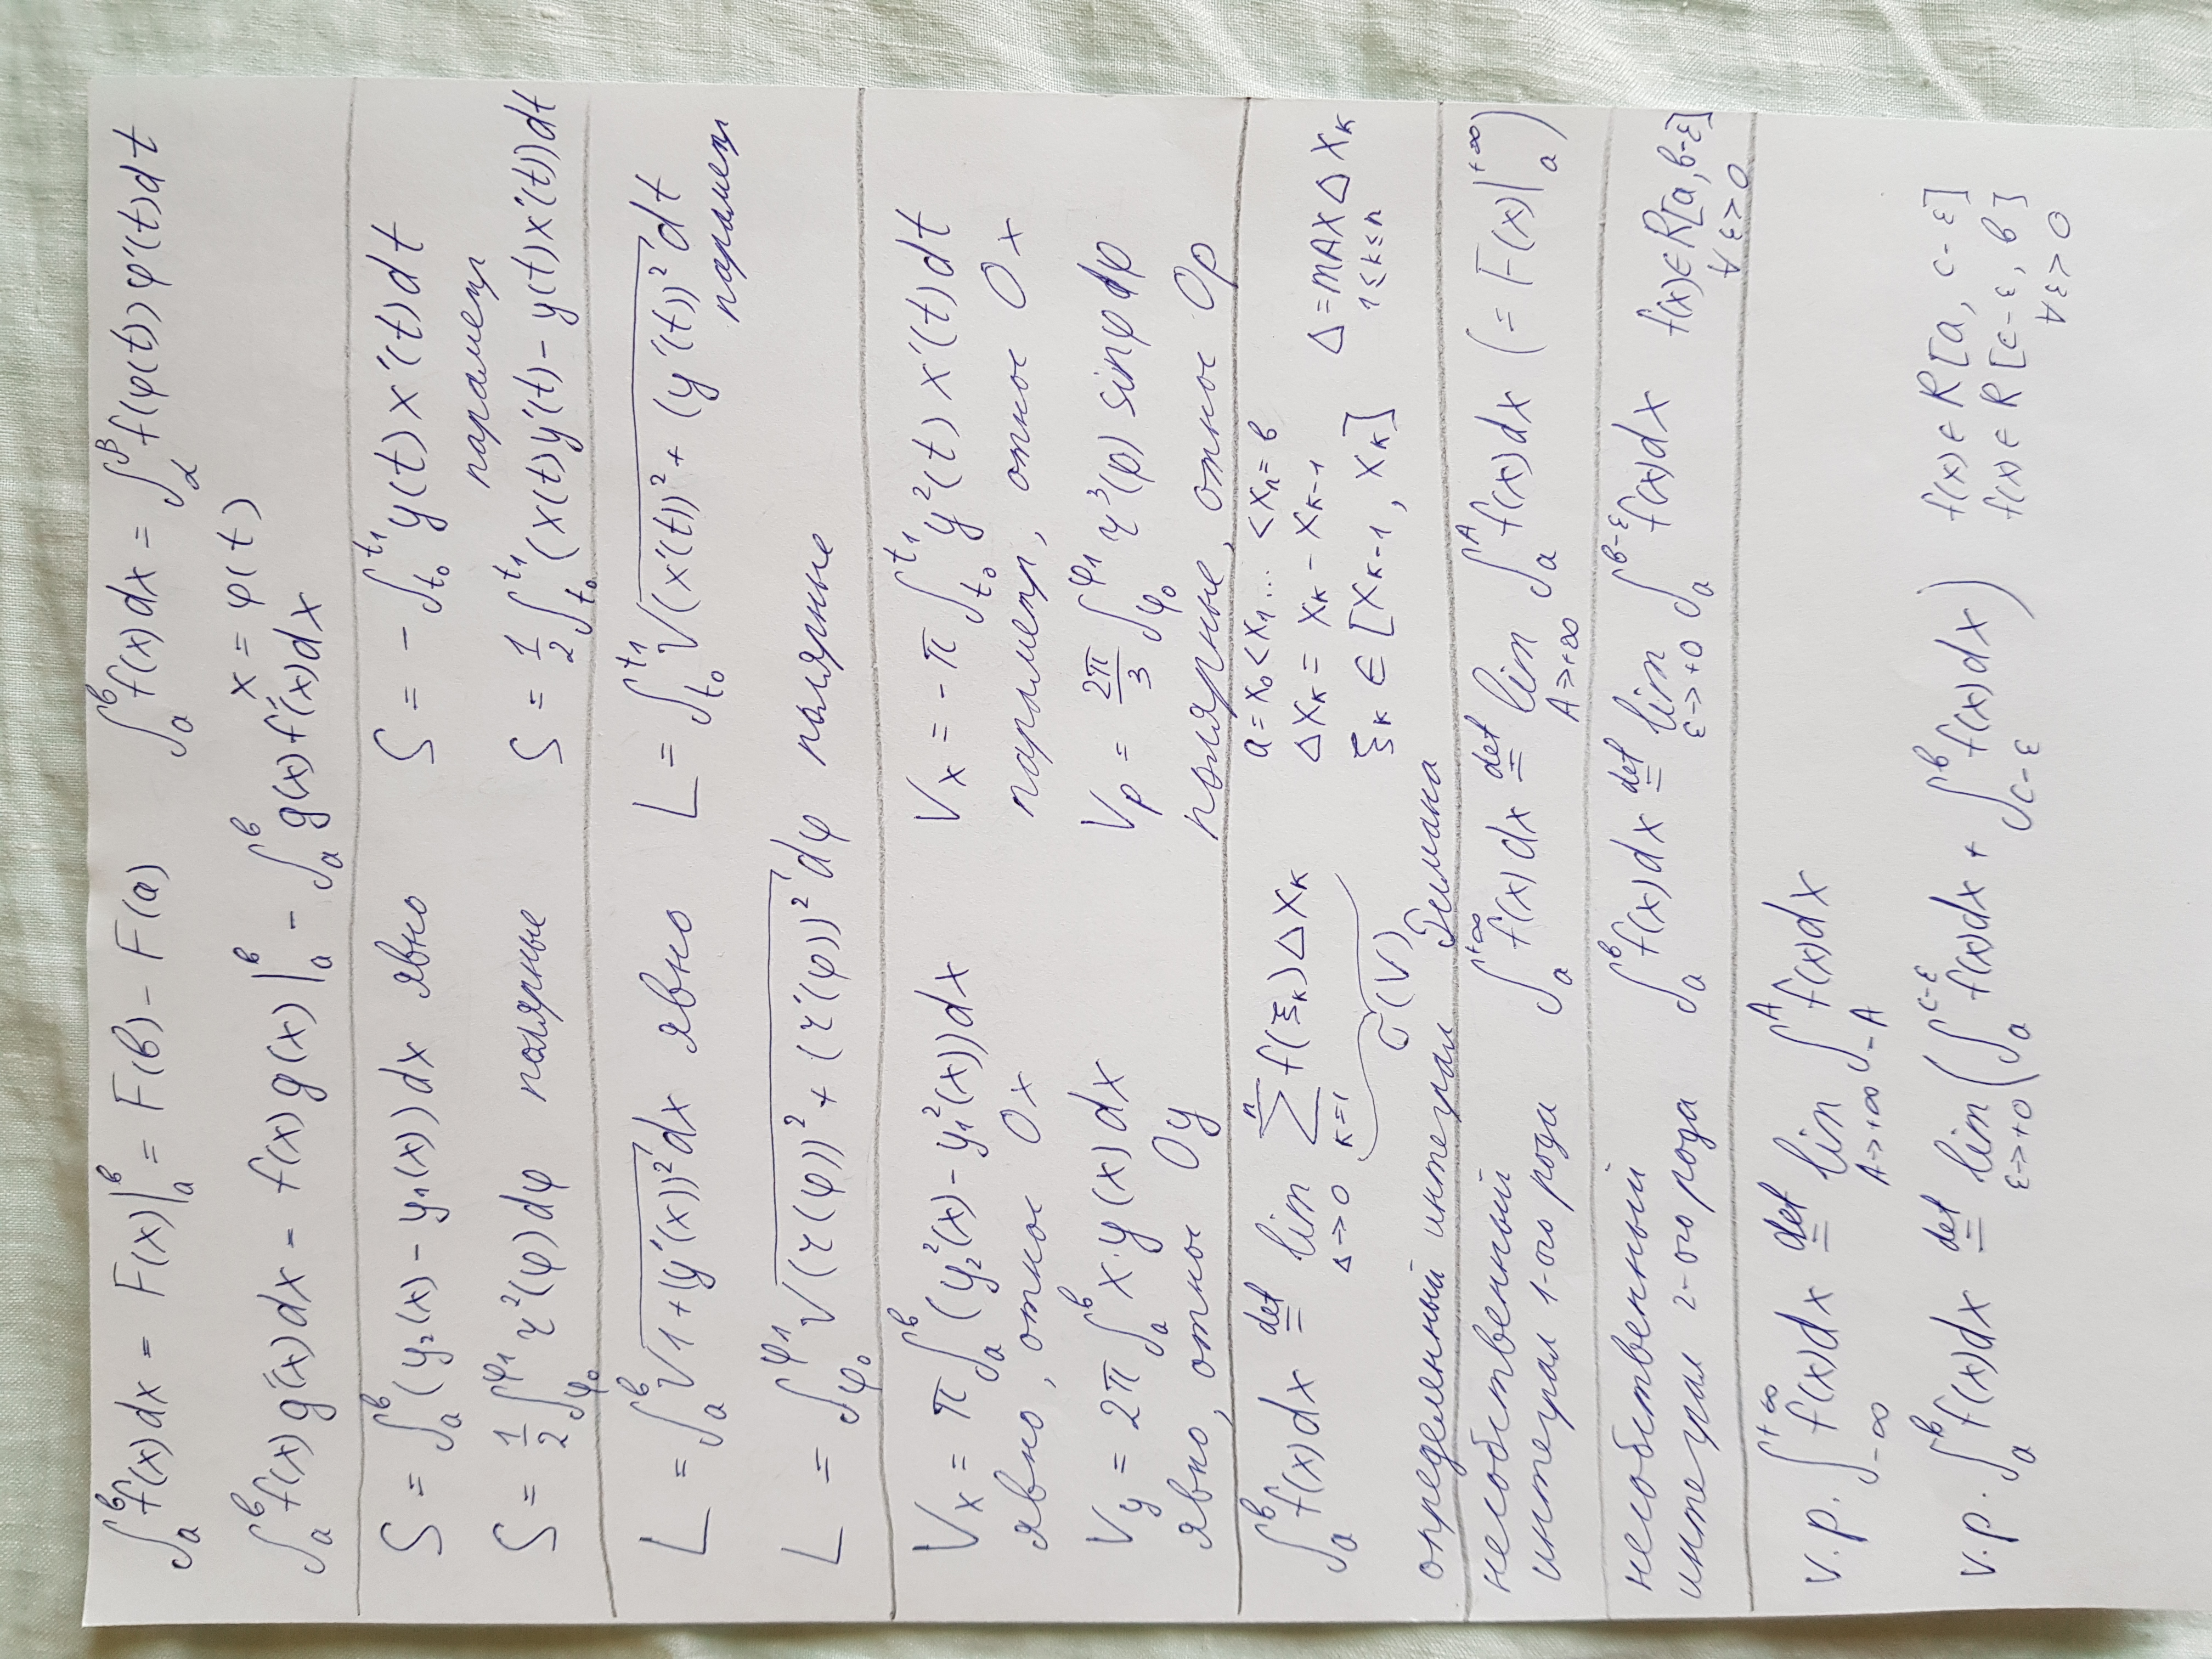 ∫ₐᵇ f(x)dx = F(x)|ₐᵇ = F(b) - F(a)   ∫ₐᵇ f(x)dx = ∫_α^β f(φ(t))φ'(t)dt
x = φ(t)
∫ₐᵇ f(x)g'(x)dx = f(x)g(x)|ₐᵇ - ∫ₐᵇ g(x)f'(x)dx
S = ∫ₐᵇ (y₂(x) - y₁(x))dx явно   S = - ∫_{t₀}^{t₁} y(t)x'(t)dt
парамет
S = 1/2 ∫_{φ₀}^{φ₁} r²(φ)dφ полярные   S = 1/2 ∫_{t₀}^{t₁} (x(t)y'(t) - y(t)x'(t))dt
L = ∫ₐᵇ √(1+(y'(x))²) dx явно   L = ∫_{t₀}^{t₁} √((x'(t))² + (y'(t))²) dt
парамет
L = ∫_{φ₀}^{φ₁} √((r(φ))² + (r'(φ))²) dφ полярные
Vₓ = π ∫ₐᵇ (y₂²(x) - y₁²(x))dx   Vₓ = -π ∫_{t₀}^{t₁} y²(t)x'(t)dt
явно, относ 0x   парамет, относ 0x
V_y = 2π ∫ₐᵇ x·y(x)dx   V_p = 2π/3 ∫_{φ₀}^{φ₁} r³(p) sinφ dp
явно, относ 0y   полярные, относ 0p
∫ₐᵇ f(x)dx =^{def} lim_{Δ→0} ∑_{k=1}^{n} f(ξₖ)Δxₖ   a = x₀ < x₁... < xₙ = b
σ(V)   Δxₖ = xₖ - xₖ₋₁   Δ = max_{1≤k≤n} Δxₖ
ξₖ ∈ [xₖ₋₁, xₖ]
определенный интеграл Римана
несобственный   ∫ₐ^{+∞} f(x)dx =^{def} lim_{A→+∞} ∫ₐᴬ f(x)dx (= F(x)|ₐ^{+∞})
интеграл 1-ого рода
несобственный   ∫ₐᵇ f(x)dx =^{def} lim_{ε→+0} ∫ₐ^{b-ε} f(x)dx   f(x)∈R[a, b-ε]
интеграл 2-ого рода   ∀ε>0
v.p. ∫_{-∞}^{+∞} f(x)dx =^{def} lim_{A→+∞} ∫_{-A}^{A} f(x)dx
v.p. ∫ₐᵇ f(x)dx =^{def} lim_{ε→+0} (∫ₐ^{c-ε} f(x)dx + ∫_{c-ε}^{b} f(x)dx)   f(x)∈R[a, c-ε]
f(x)∈R[c-ε, b]
∀ε>0